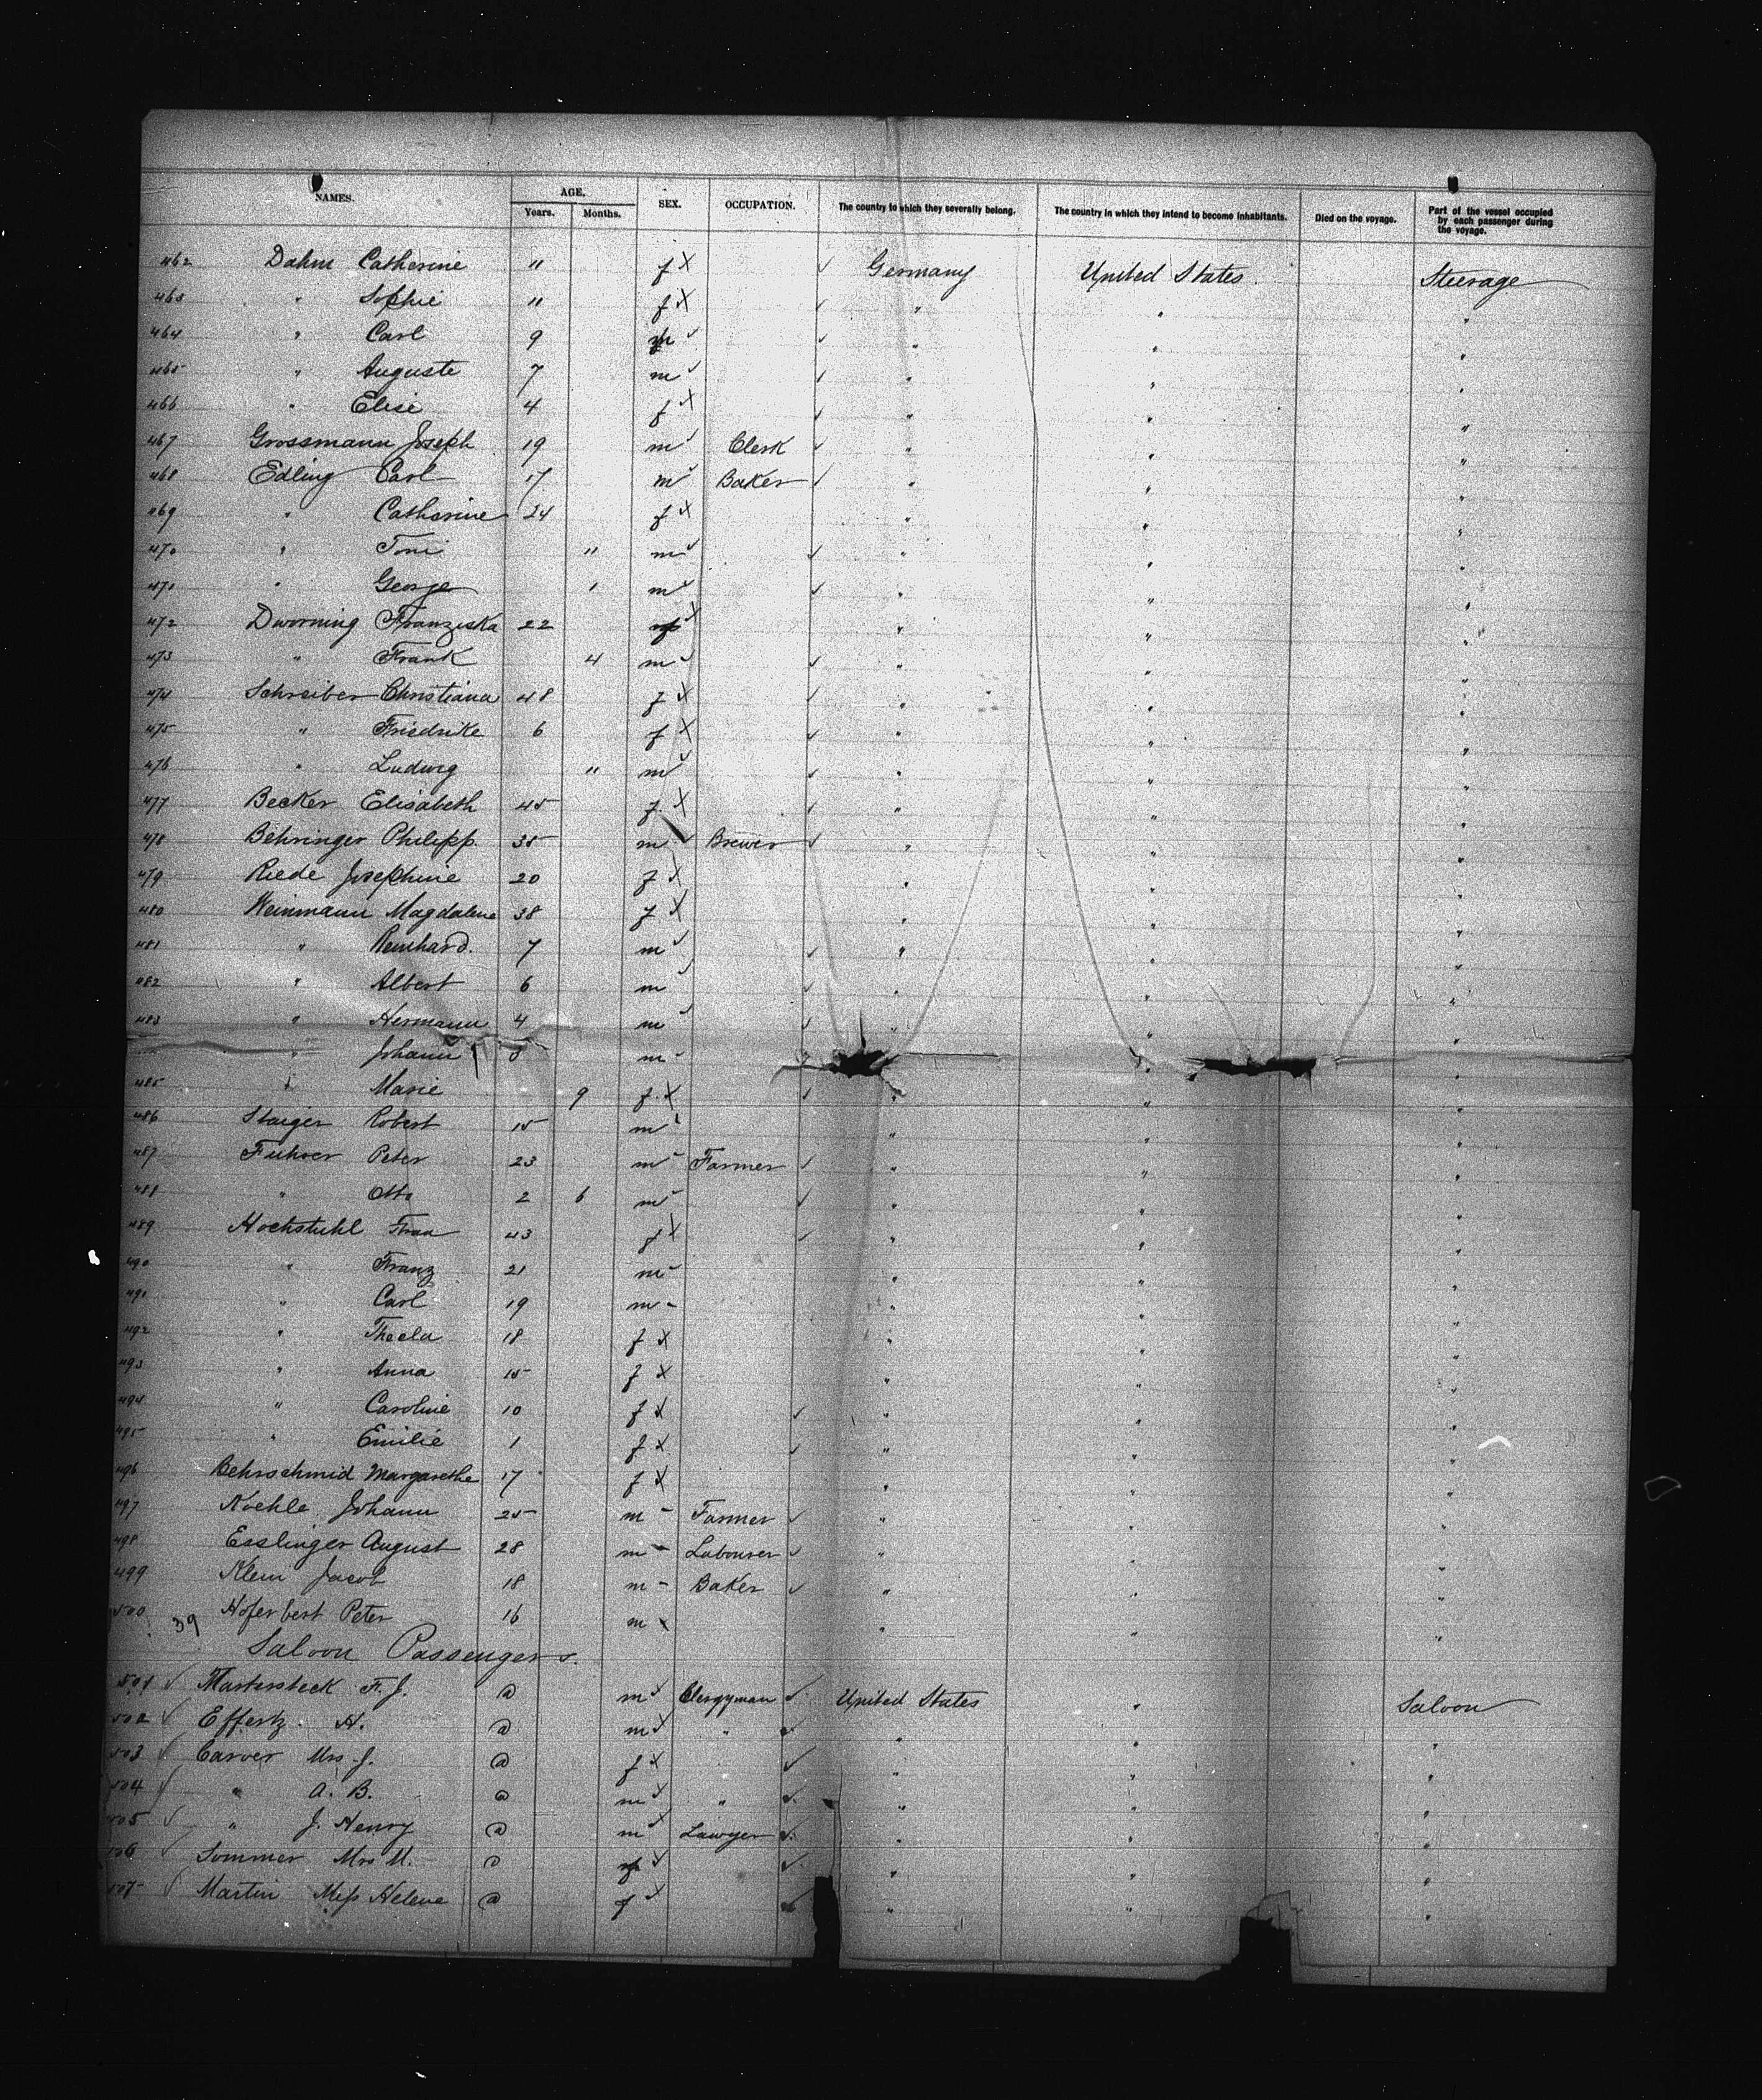 NAMES. AGE. Years. Months. SEX. OCCUPATION. The country to which they severally belong. The country in which they intend to become inhabitants. Died on the voyage. Part of the vessel occupied by each passenger during the voyage.
462 Dahm Catherine 11 f X ✓ Germany United States Steerage
463 " Sophie 11 f X ✓ " " "
464 " Carl 9 m ✓ ✓ " " "
465 " Auguste 7 m ✓ ✓ " " "
466 " Elise 4 f X ✓ " " "
467 Grossmann Joseph 19 m ✓ Clerk ✓ " " "
468 Edling Carl 17 m ✓ Baker ✓ " " "
469 " Catherine 24 f X " " "
470 " Toni 11 m ✓ ✓ " " "
471 " George 1 m ✓ ✓ " " "
472 Dworning Franziska 22 f X " " "
473 " Frank 4 m ✓ ✓ " " "
474 Schreiber Christiana 48 f X ✓ " " "
475 " Friedrike 6 f X ✓ " " "
476 " Ludwig 11 m ✓ ✓ " " "
477 Becker Elisabeth 45 f X ✓ " " "
478 Behringer Philipp. 35 m ✓ Brewer ✓ " " "
479 Riede Josephine 20 f X " " "
480 Weinmann Magdalena 38 f X " " "
481 " Reinhard. 7 m ✓ ✓ " " "
482 " Albert 6 m ✓ ✓ " " "
483 " Hermann 4 m ✓ ✓ " " "
" Johann 3 m - " "
485 " Marie 9 f X ✓ " " "
486 Staiger Robert 15 m ✓ " " "
487 Peter 23 m - Farmer ✓ " " "
488 " Otto 2 6 m - ✓ " " "
489 Hochstuhl Frau 43 f X ✓ " " "
490 " Franz 21 m - " " "
491 " Carl 19 m - " " "
492 " Thecla 18 f X " " "
493 " Anna 15 f X " " "
494 " Caroline 10 f X ✓ " " "
495 " Emilie 1 f X ✓ " " "
496 Behrschmid Margarethe 17 f X " " "
497 Koehle Johann 25 m - Farmer ✓ " " "
498 Esslinger August 28 m - Labourer ✓ " " "
499 Klein Jacob 18 m - Baker ✓ " " "
500 Hoferbert Peter 16 m - " " "
39
Saloon Passengers.
501 ✓ F. J. @ m ✓ Clergyman ✓ United States " Saloon
502 ✓ Effertz. H. @ m ✓ " ✓ " " "
503 ✓ Carver Mrs. J. @ f X ✓ " " "
504 ✓ " A. B. @ m ✓ " ✓ " " "
505 ✓ " J. Henry @ m ✓ Lawyer ✓ " " "
506 ✓ Sommer Mrs M. @ f ✓ ✓ " " "
507 ✓ Martin Miss Helene @ f X ✓ " " "